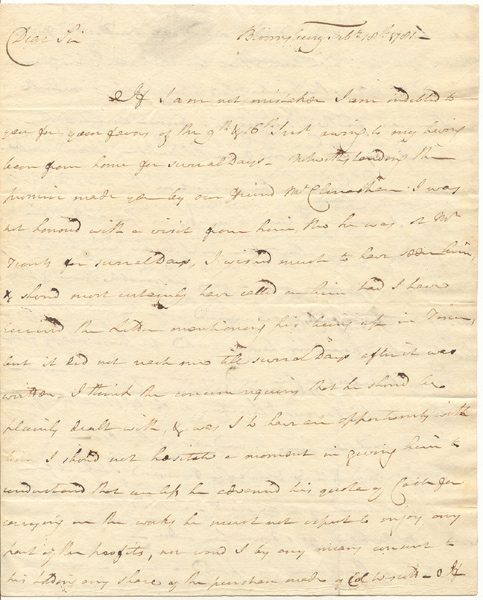 Dear Sir
Bloomsbury Feb. 18th 1785
If I am not mistaken I am indebted to
you for your favors of the 9th & 16th Inst owing to my being
been from home for several Days - Notwithstanding the
promise made you by our friend Mr Clanachan I was
not honored with a visit from him, tho he was at Mr
for several Days, I wished much to have seen him,
& should most certainly have called on him had I have
received the letter mentioning his being up in Town,
but it did not reach me till several Days after it was
written, I think the concern requires that he should be
plainly dealt with, & was I to have an opportunity with
him I should not hesitate a moment in giving him to
understand that unless he advanced his quota of Cash for
carrying on the works he must not expect to enjoy any
part of the profits, nor would I by any means consent to
his holding any share of the purchase made of Edwards - If